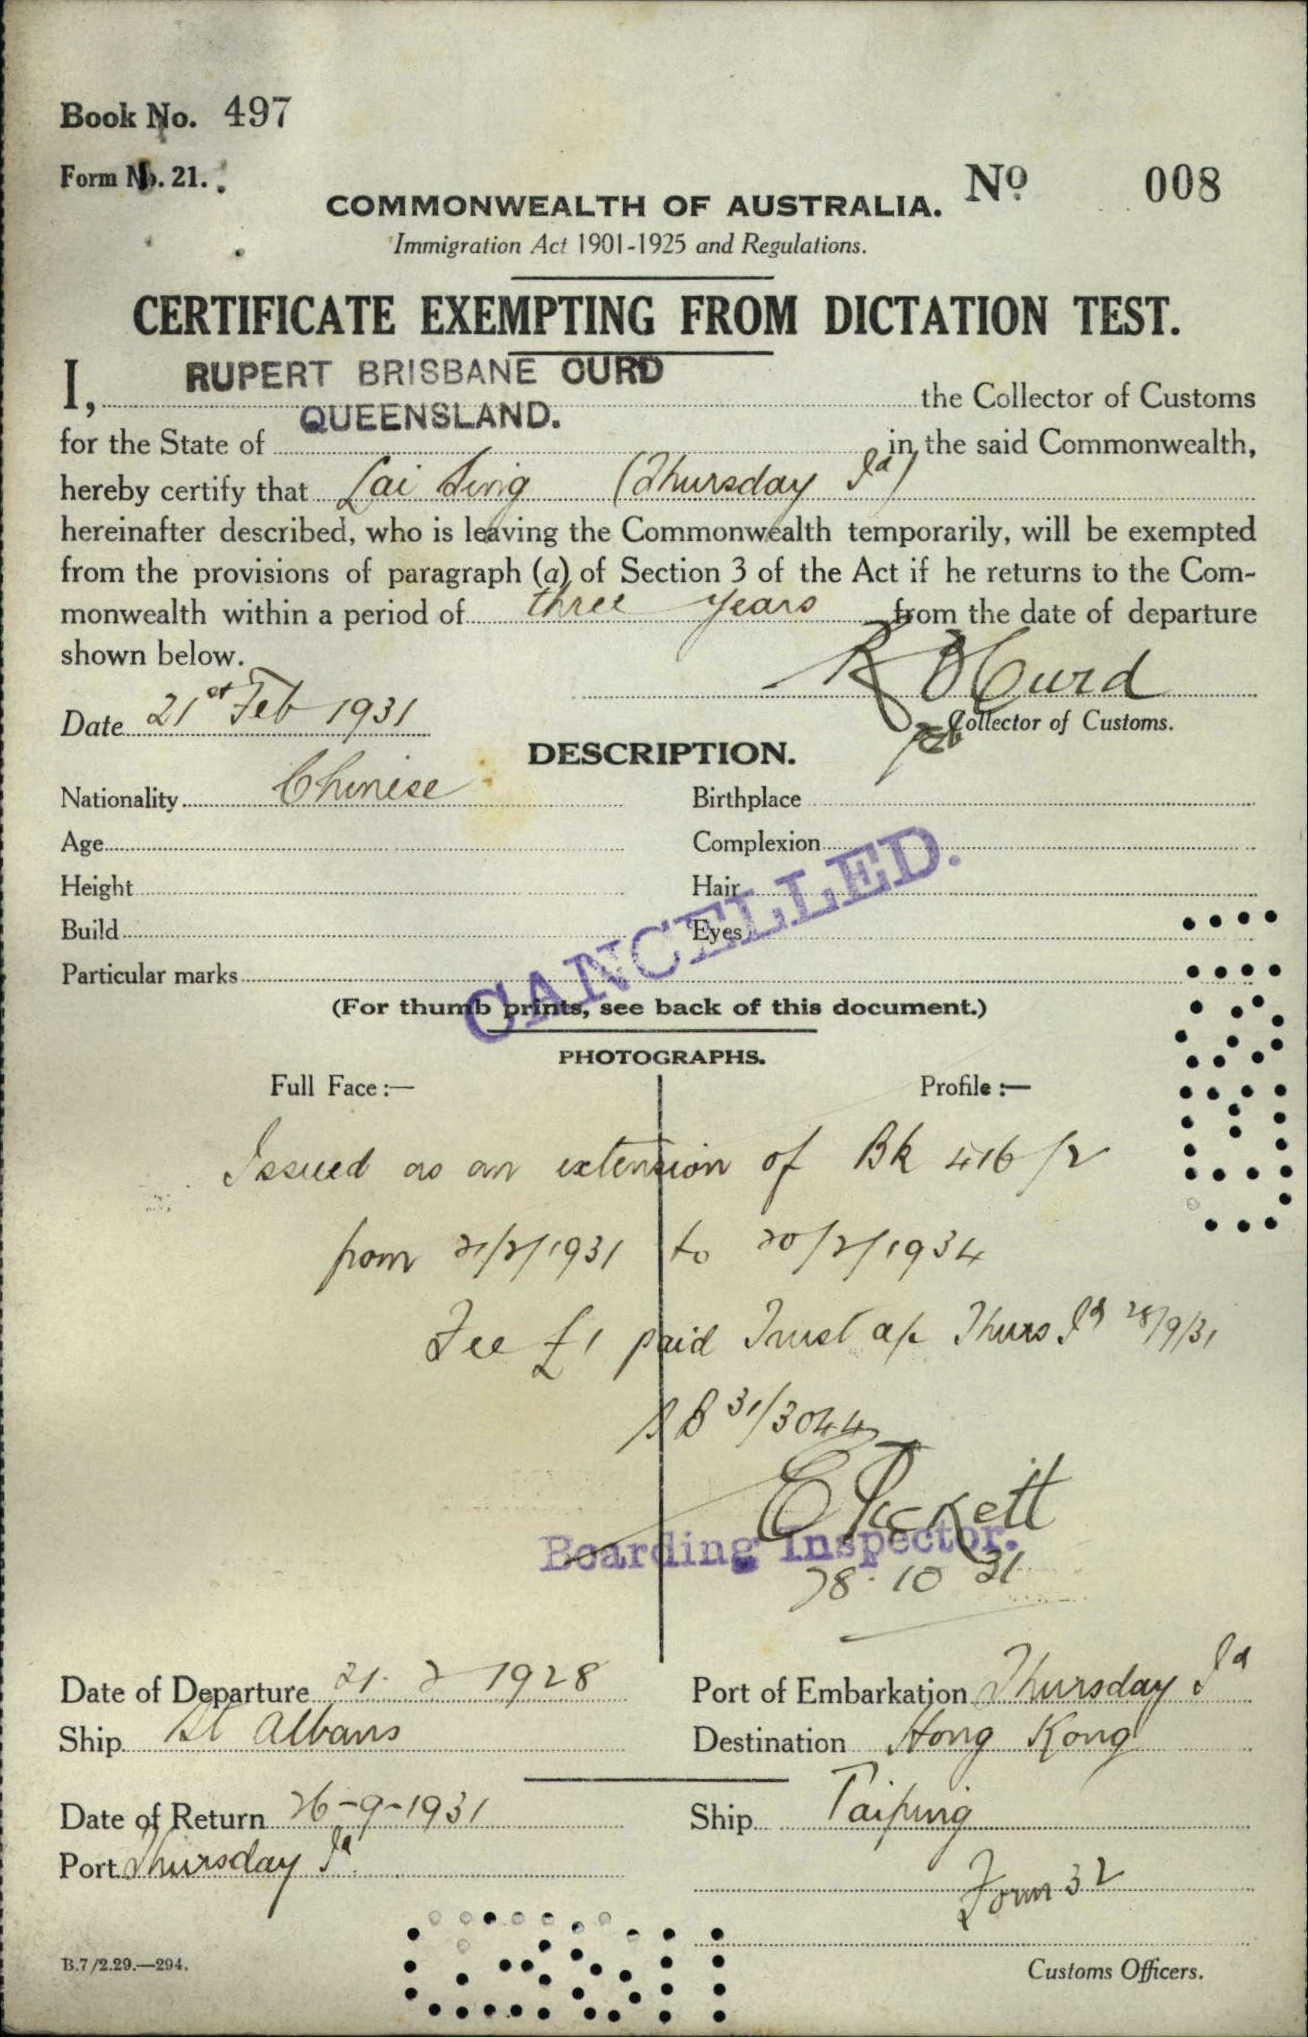 Book No. 497
Form No. 21.
No 008
COMMONWEALTH OF AUSTRALIA.
Immigration Act 1901-1925 and Regulations.
CERTIFICATE EXEMPTING FROM DICTATION TEST.
I, RUPERT BRISBANE CURD the Collector of Customs
for the State of QUEENSLAND. in the said Commonwealth,
hereby certify that Lai Sing (Thursday Id)
hereinafter described, who is leaving the Commonwealth temporarily, will be exempted
from the provisions of paragraph (a) of Section 3 of the Act if he returns to the Com-
monwealth within a period of three years from the date of departure
shown below.
R B Curd
Date 21st Feb 1931
Collector of Customs.
DESCRIPTION.
Nationality Chinese Birthplace
Age Complexion
Height Hair
Build Eyes
Particular marks
CANCELLED.
(For thumb prints, see back of this document.)
PHOTOGRAPHS.
Full Face:— Profile:—
Issued as an extension of Bk 416/2
from 21/2/1931 to 20/2/1934
Fee £1 paid Trust a/c Thurs Id 28/9/31
SB 31/3044
E Pickett
Boarding Inspector.
28.10 31
Date of Departure 21. 2 1928 Port of Embarkation Thursday Id
Ship St Albans Destination Hong Kong
Date of Return 26-9-1931 Ship Taiping
Port Thursday Id
Form 32
B.7/2.29.—294.
Customs Officers.